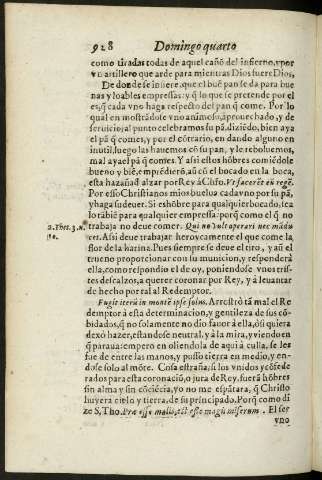 928 Domingo quarto
como tiradas todas de aquel cañõ del infierno, y por
vn artillero que arde para mientras Dios fuere Dios,
De donde se infiere, que el buẽ pan se da para bue
nas y loables empressas: y q̃ lo que se pretende por el
es, q̃ cada vno haga respecto del pan q̃ come. Por lo
qual en mostrãdose vno animoso, aprouechado, y de
seruicio; al punto celebramos su pã, diziẽdo, bien aya
el pã q̃ comes, y por el cõtrario, en dando alguno en
inutil, luego las hauemos cõ su pan, y le reboluemos,
mal aya el pã q̃ comes. Y assi estos hõbres comiẽdole
bueno y biẽ, emprẽdierõ, aũ cõ el bocado en la boca,
esta hazaña d̃ alzar por Rey á Chr̃o. Vt facerẽt eũ regẽ.
Por esso Christianos mios buelua cada vno por su pã,
y haga su deuer. Si es hõbre para qualquier bocado, sea
lo tãbiẽ para qualquier empressa. porq̃ como el q̃ no
2. Thes. 3. n. trabaja no deue comer. Qui non vult operari nec mãdu
10. cet. Assi deue trabajar heroycamente el que come la
flor de la harina. Pues siempre se deue el tiro, y aũ el
trueno proporcionar con su municion, y responderá
ella, como respondio el de oy, poniendose vnos tris-
tes descalzos, a querer coronar por Rey, y á leuantar
de hecho por tal al Redemptor.
Fugit iterũ in montẽ ipse solus. Arrostrò tã mal el Re
demptor à esta determinacion, y gentileza de sus cõ-
bidados, q̃ no solamente no dio fauor à ella, ó si quiera
dexó hazer, estandose neutral, y á la mira, y viendo en
q̃ paraua: empero en oliendola de aqui á culla, se les
fue de entre las manos, y puso tierra en medio, y en-
dose solo al mõte. Cosa estraña, si los vnidos y cõfede
rados para esta coronaciõ, o jura de Rey, fuerã hõbres
sin alma y sin cõciẽcia, yo no me espãtara, q̃ Christo
huyera cielo y tierra, de su principado. Porq̃ como di
ze S. Tho. Præ esse malis, est magis miserum. El ser
vno